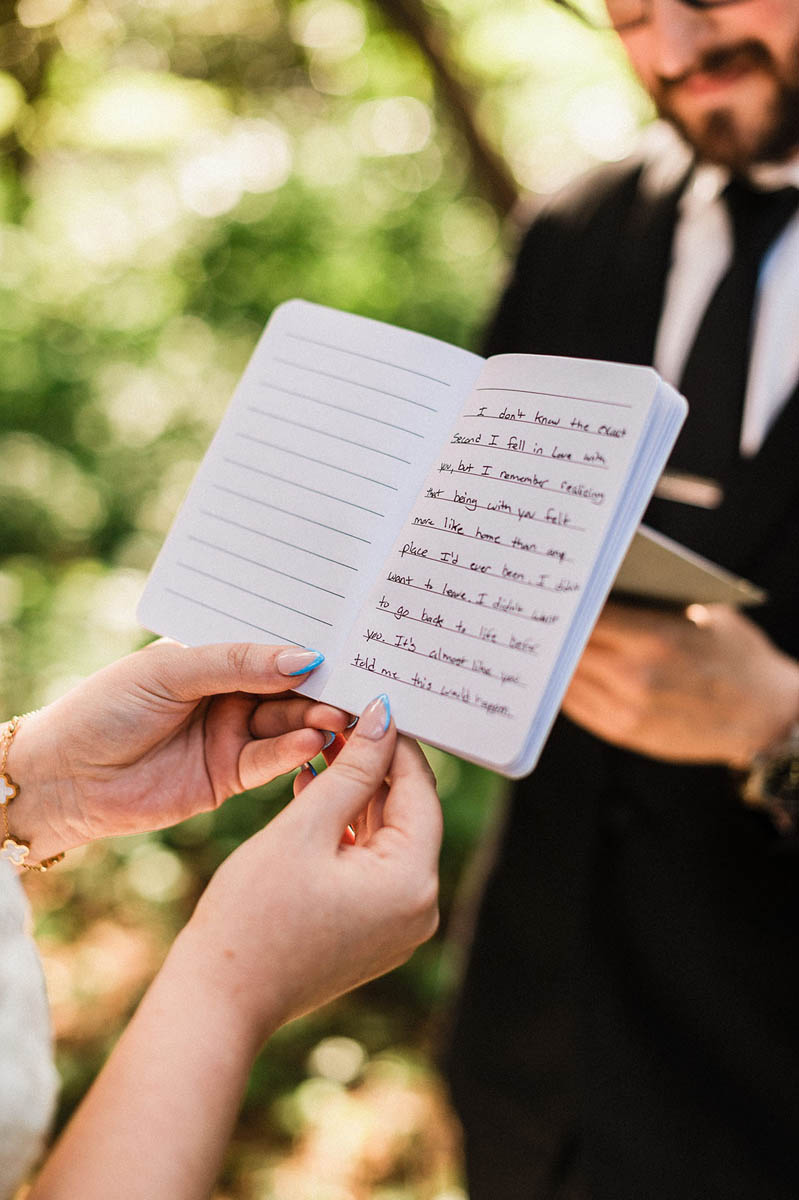 I don't know the exact
second I fell in love with
you, but I remember realizing
that being with you felt
more like home than any
place I'd ever been. I didn't
want to leave. I didn't want
to go back to life before
you. It's almost like you
told me this would happen.